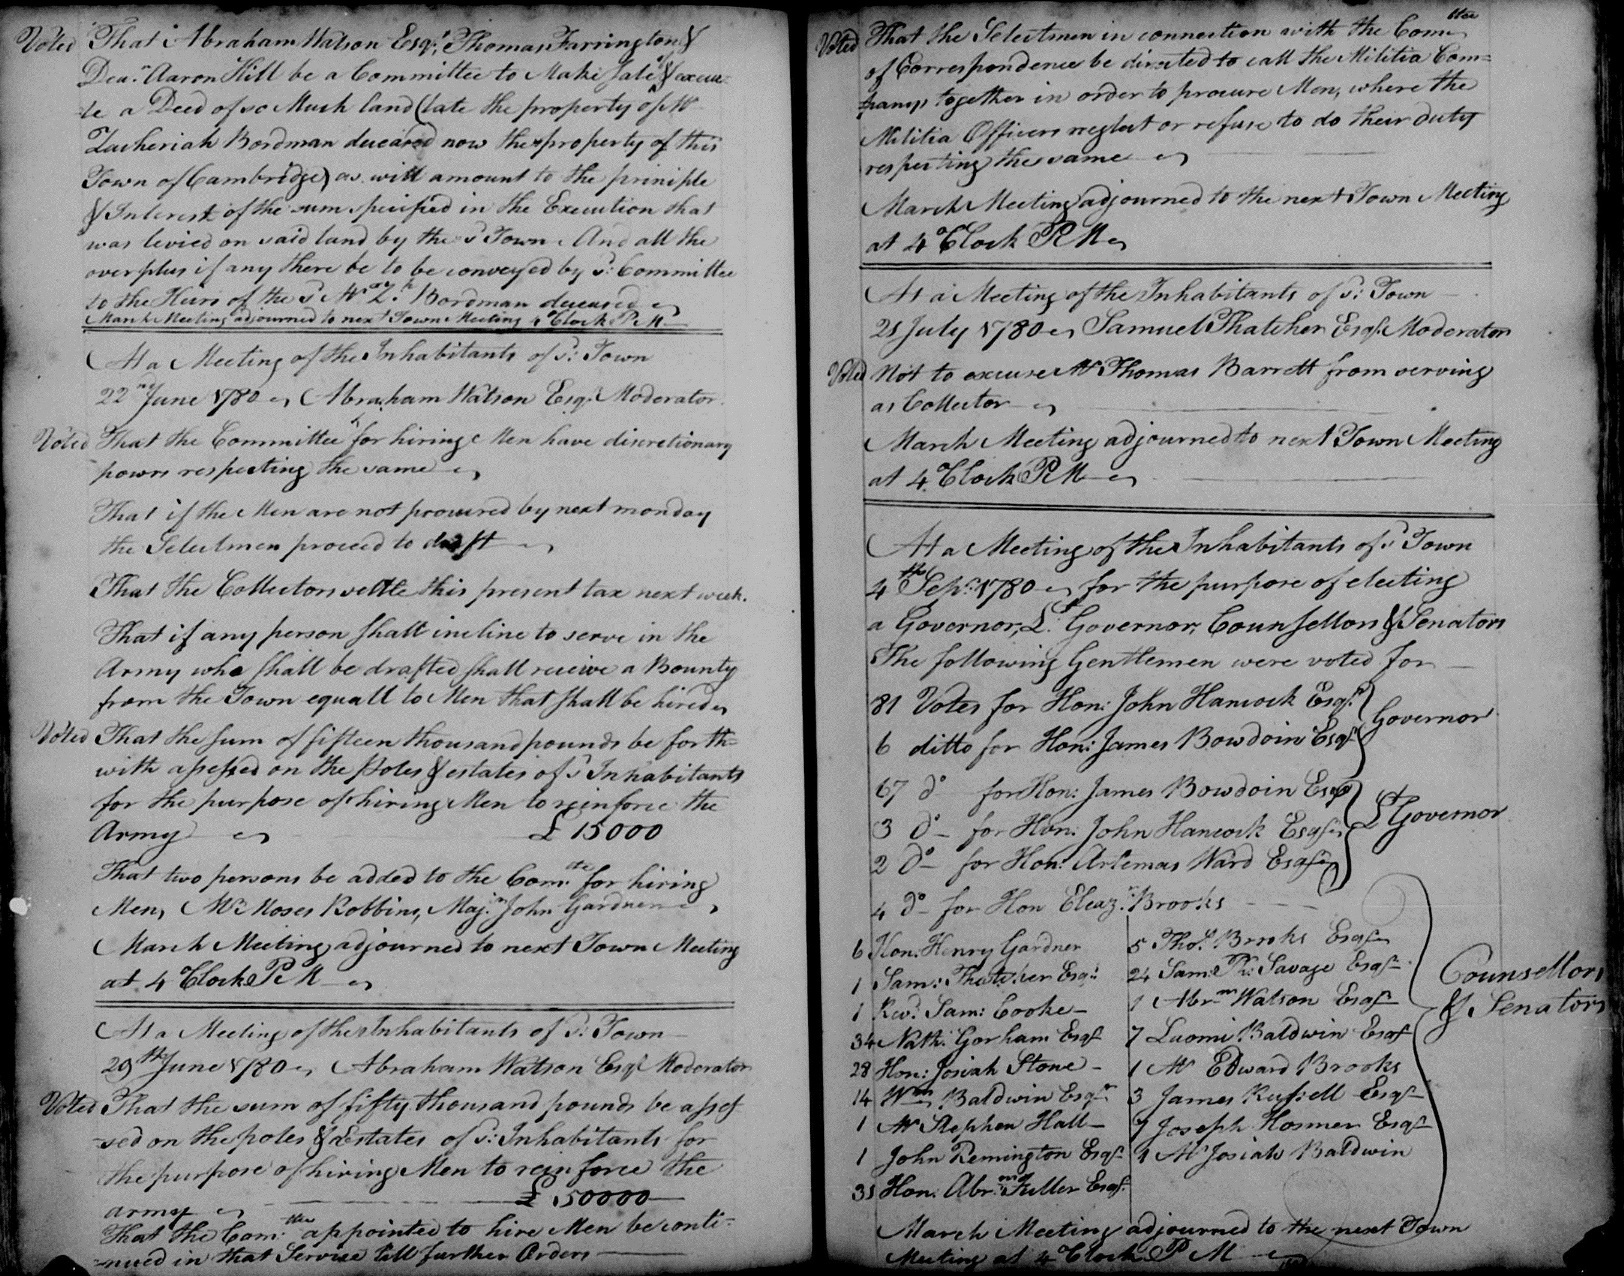 Voted That Abraham Watson Esqr. Thomas Farrington &
Dea.n Aaron Hill be a Committee to Make Sale & execu-
te a Deed of so Much land (late the property of Mr
Zacheriah Bordman deceased now the property of this
Town of Cambridge) as will amount to the principle
& Interest of the sum specified in the Execution that
was levied on said land by the sd Town. And all the
overplus if any there be to be conveyed by sd: Committee
to the Heirs of the sd Mr Z.h Bordman deceased
March Meeting adjourned to next Town Meeting 4 oClock P. M.
At a Meeting of the Inhabitants of sd: Town
22nd June 1780 Abraham Watson Esqr. Moderator.
Voted That the Committee for hiring Men have discretionary
powrs respecting the same
That if the Men are not procured by next monday
the Selectmen proceed to draft
That the Collectors settle this present tax next week.
That if any person shall incline to serve in the
Army who shall be drafted shall receive a Bounty
from the Town equall to Men that shall be hired
Voted That the sum of fifteen thousand pounds be forth=
with assessed on the Poles & estates of sd Inhabitants
for the purpose of hiring Men to reinforce the
Army £ 15000
That two persons be added to the Com.tte for hiring
Men, Mr. Moses Robbins, Maj.r John Gardner
March Meeting adjourned to next Town Meeting
at 4 oClock P M
At a Meeting of the Inhabitants of sd: Town
29th June 1780 Abraham Watson Esqr Moderator
Voted That the sum of fifty thousand pounds be asses
=sed on the poles & Estates of sd: Inhabitants for
the purpose of hiring Men to reinforce the
army £ 50000
That the Com:ttee appointed to hire Men be conti-
=nued in that Service till further Orders
Voted That the Selectmen in connection with the Comttee
of Correspondence be directed to call the Militia Com=
panys together in order to procure Men, where the
Militia Officers neglect or refuse to do their duty
respecting the same
March Meeting adjourned to the next Town Meeting
at 4 oClock P M
At a Meeting of the Inhabitants of sd: Town
21 July 1780 Samuel Thatcher Esqr. Moderator
Voted Not to excuse Mr Thomas Barrett from serving
as Collector
March Meeting adjourned to next Town Meeting
at 4 oClock P. M
At a Meeting of the Inhabitants of sd Town
4th Sepr. 1780 for the purpose of electing
a Governor, Lt. Governor, Counsellors & Senators
The following Gentlemen were voted for
81 Votes for Hon: John Hancock Esqr.
Governor
6 ditto for Hon: James Bowdoin Esqr
67 do for Hon: James Bowdoin Esqr
3 do for Hon: John Hancock Esqr
Lt Governor
2 do for Hon: Artemas Ward Esqr
4 do for Hon Eleaz.r Brooks
6 Hon: Henry Gardner
5 Tho.s Brooks Esqr
1 Sam: Thatcher Esqr:
24 Sam: Ph: Savage Esqr
1 Revd. Sam: Cooke
1 Abrm Watson Esqr
34 Nath: Gorham Esqr
7 Luomi Baldwin Esqr
28 Hon: Josiah Stone
1 Mr Edward Brooks
14 Wm Baldwin Esqr
3 James Russell Esqr
1 Mr Stephen Hall
7 Joseph Hosmer Esqr
1 John Remington Esqr
1 Mr Josiah Baldwin
31 Hon: Abrm Fuller Esqr.
Counsellors
& Senators
March Meeting adjourned to the next Town
Meeting at 4 oClock P M